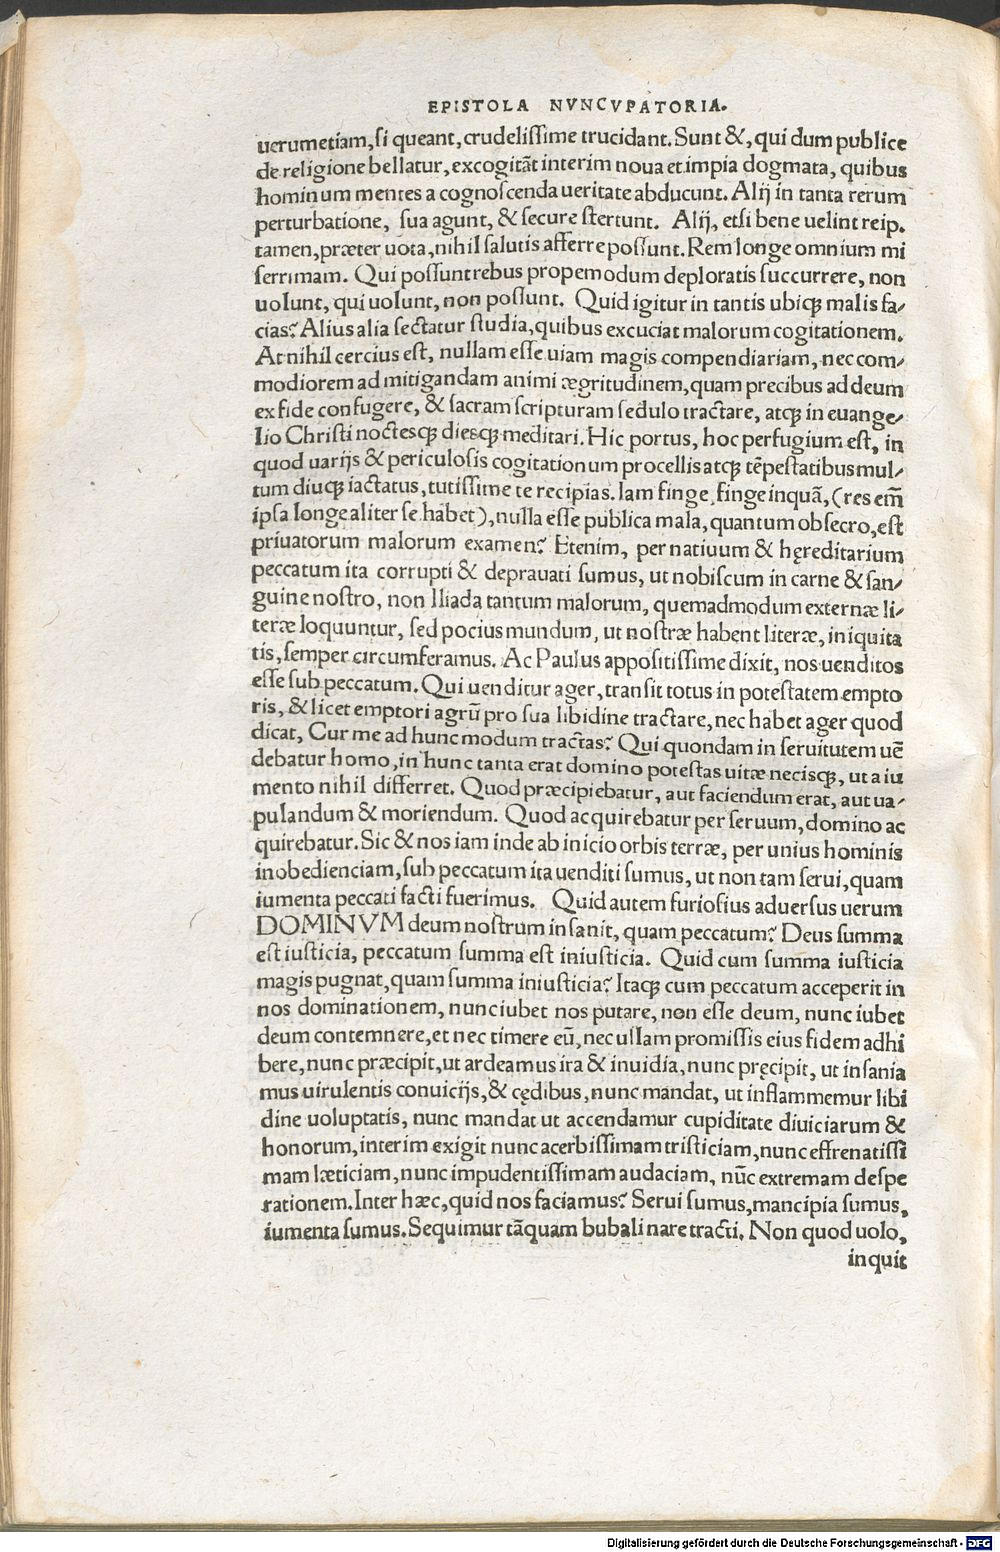 EPISTOLA NVNCVPATORIA.
uerumetiam, si queant, crudelissime trucidant. Sunt &, qui dum publice
de religione bellatur, excogitãt interim noua et impia dogmata, quibus
hominum mentes a cognoscenda ueritate abducunt. Alij in tanta rerum
perturbatione, sua agunt, & secure stertunt. Alij, etsi bene uelint reip.
tamen, præter uota, nihil salutis afferre possunt. Rem longe omnium mi
serrimam. Qui possunt rebus propemodum deploratis succurrere, non
uolunt, qui uolunt, non possunt. Quid igitur in tantis ubiqꝫ malis fa/
cias? Alius alia sectatur studia, quibus excuciat malorum cogitationem.
At nihil cercius est, nullam esse uiam magis compendiariam, nec com/
modiorem ad mitigandam animi ægritudinem, quam precibus ad deum
ex fide confugere, & sacram scripturam sedulo tractare, atqꝫ in euange/
lio Christi noctesqꝫ diesqꝫ meditari. Hic portus, hoc perfugium est, in
quod uarijs & periculosis cogitationum procellis atqꝫ tẽpestatibus mul/
tum diuqꝫ iactatus, tutissime te recipias. Iam finge, finge inquã, (res em̃
ipsa longe aliter se habet), nulla esse publica mala, quantum obsecro, est
priuatorum malorum examen? Etenim, per natiuum & hęreditarium
peccatum ita corrupti & deprauati sumus, ut nobiscum in carne & san/
guine nostro, non Iliada tantum malorum, quemadmodum externæ li/
teræ loquuntur, sed pocius mundum, ut nostræ habent literæ, iniquita
tis, semper circumferamus. Ac Paulus appositissime dixit, nos uenditos
esse sub peccatum. Qui uenditur ager, transit totus in potestatem empto
ris, & licet emptori agrũ pro sua libidine tractare, nec habet ager quod
dicat, Cur me ad hunc modum tractas? Qui quondam in seruitutem uẽ
debatur homo, in hunc tanta erat domino potestas uitæ necisqꝫ, ut a iu
mento nihil differret. Quod præcipiebatur, aut faciendum erat, aut ua/
pulandum & moriendum. Quod acquirebatur per seruum, domino ac
quirebatur. Sic & nos iam inde ab inicio orbis terræ, per unius hominis
inobedienciam, sub peccatum ita uenditi sumus, ut non tam serui, quam
iumenta peccati facti fuerimus. Quid autem furiosius aduersus uerum
DOMINVM deum nostrum insanit, quam peccatum? Deus summa
est iusticia, peccatum summa est iniusticia. Quid cum summa iusticia
magis pugnat, quam summa iniusticia? Itaqꝫ cum peccatum acceperit in
nos dominationem, nunc iubet nos putare, non esse deum, nunc iubet
deum contemnere, et nec timere eũ, nec ullam promissis eius fidem adhi
bere, nunc præcipit, ut ardeamus ira & inuidia, nunc pręcipit, ut insania
mus uirulentis conuicijs, & cędibus, nunc mandat, ut inflammemur libi
dine uoluptatis, nunc mandat ut accendamur cupiditate diuiciarum &
honorum, interim exigit nunc acerbissimam tristiciam, nunc effrenatissi
mam læticiam, nunc impudentissimam audaciam, nũc extremam despe
rationem. Inter hæc, quid nos faciamus? Serui sumus, mancipia sumus,
iumenta sumus. Sequimur tãquam bubali nare tracti. Non quod uolo,
inquit
Digitalisierung gefördert durch die Deutsche Forschungsgemeinschaft - DFG